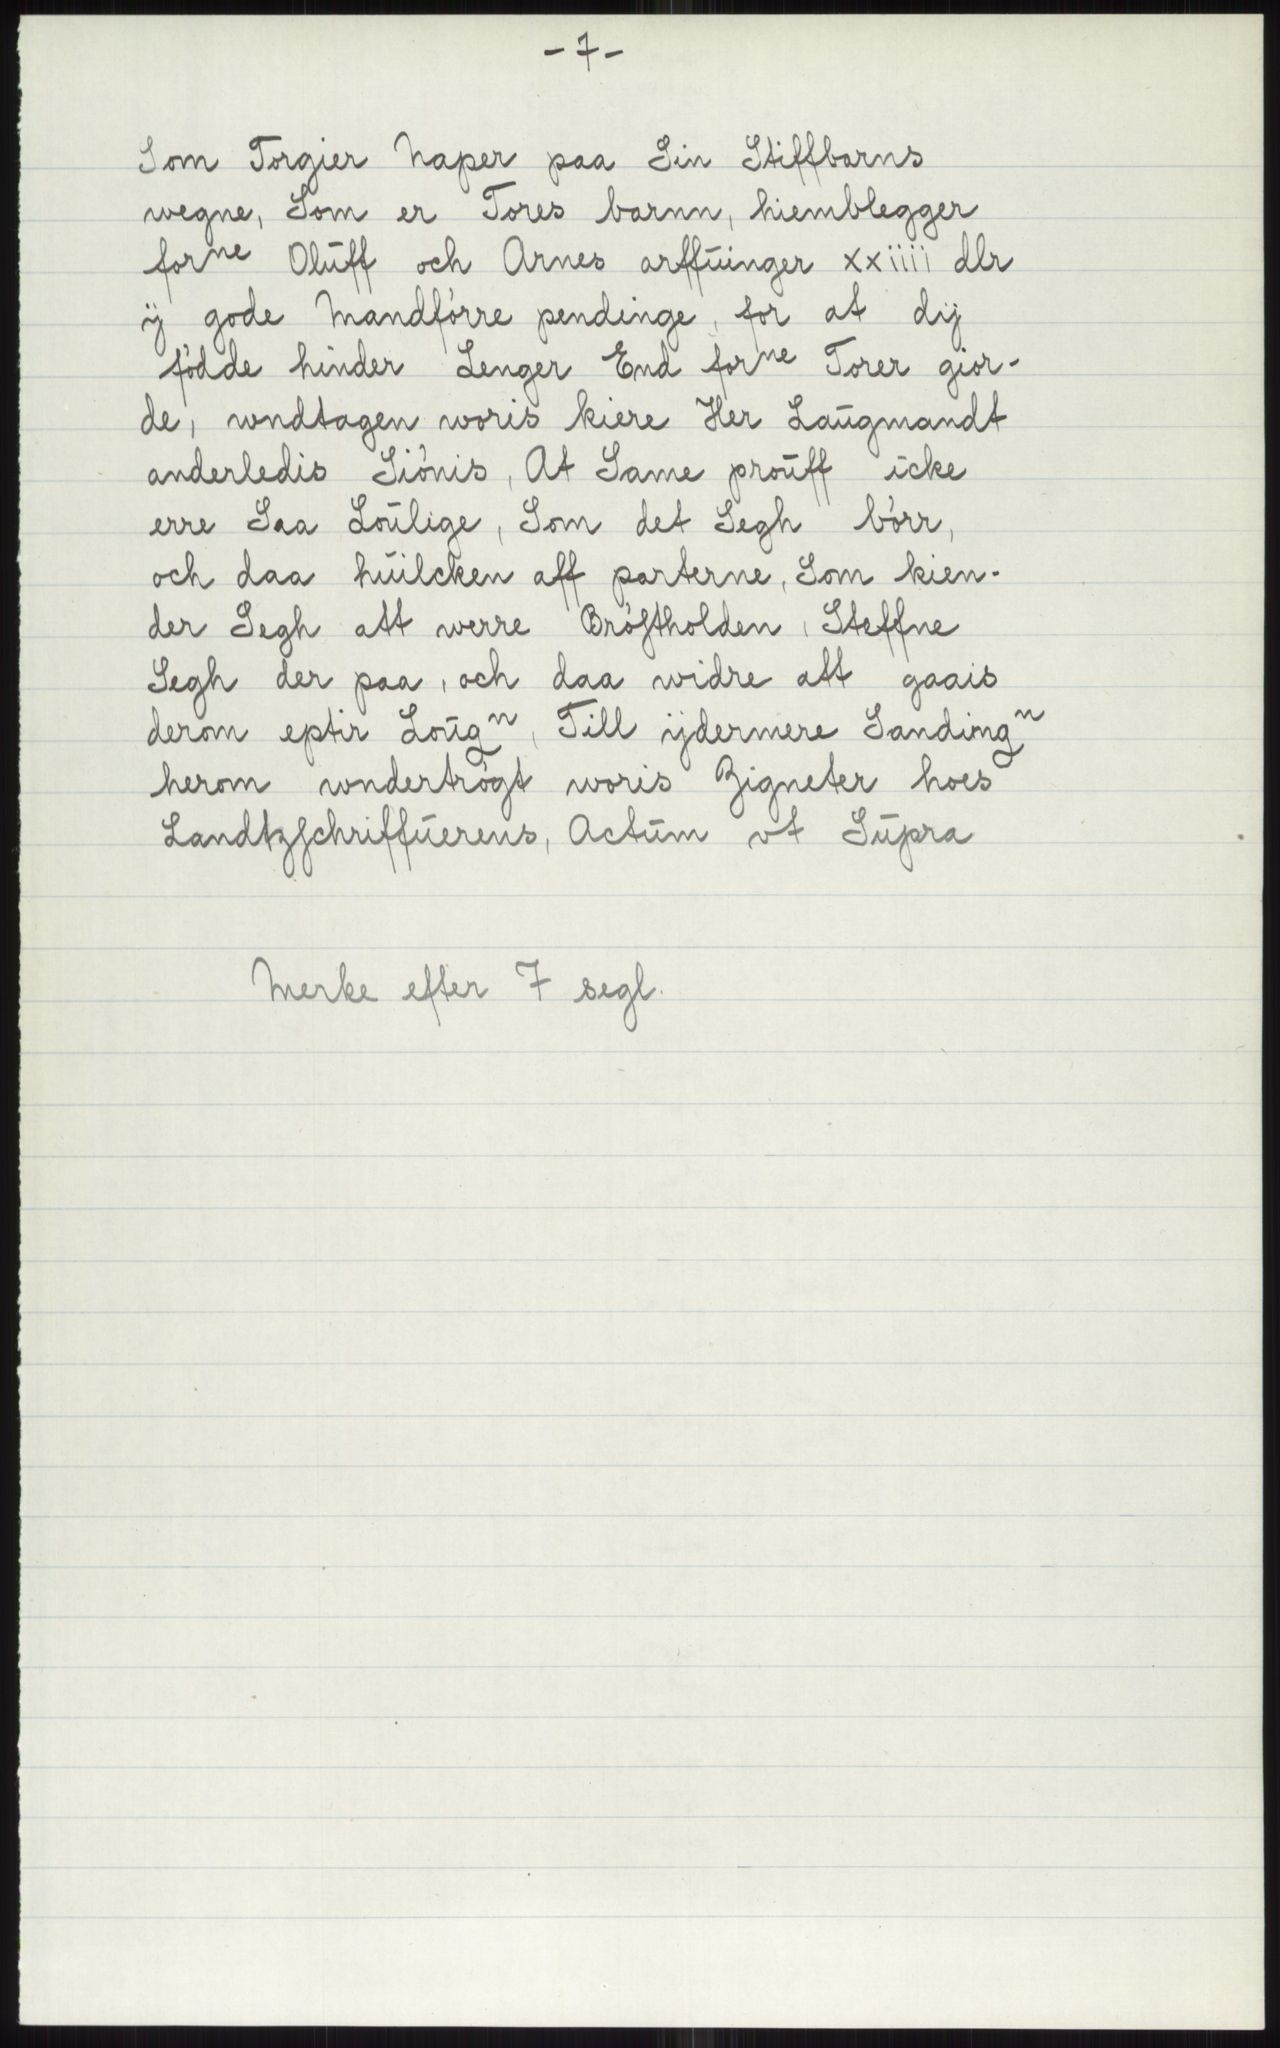 - 7 -
Som Torgier Naper paa Sin Stiffbarns
wegne, Som er Tores barnn, hiemblegger
forne Olūff och Arnes arffūinger xxiiii dlr
ÿ gode Mandförre pendinge, for at dij
födde hinder Lenger End forne Torer gior-
de, wndtagen woris kiere Her Laūgmandt
anderledis Siönis, At Same proūff icke
erre Saa Loūlige, Som det Segh börr,
och daa hūilcken aff parterne, Som kien-
der Segh att werre Bröstholden, Steffne
Segh der paa, och daa widre att gaais
derom eptir Loūgn, Till ijdermere Sandingn
herom wndertrögt woris Zigneter hoes
Landtzschriffūerens, Actūm vt Sūpra
Merke efter 7 segl.